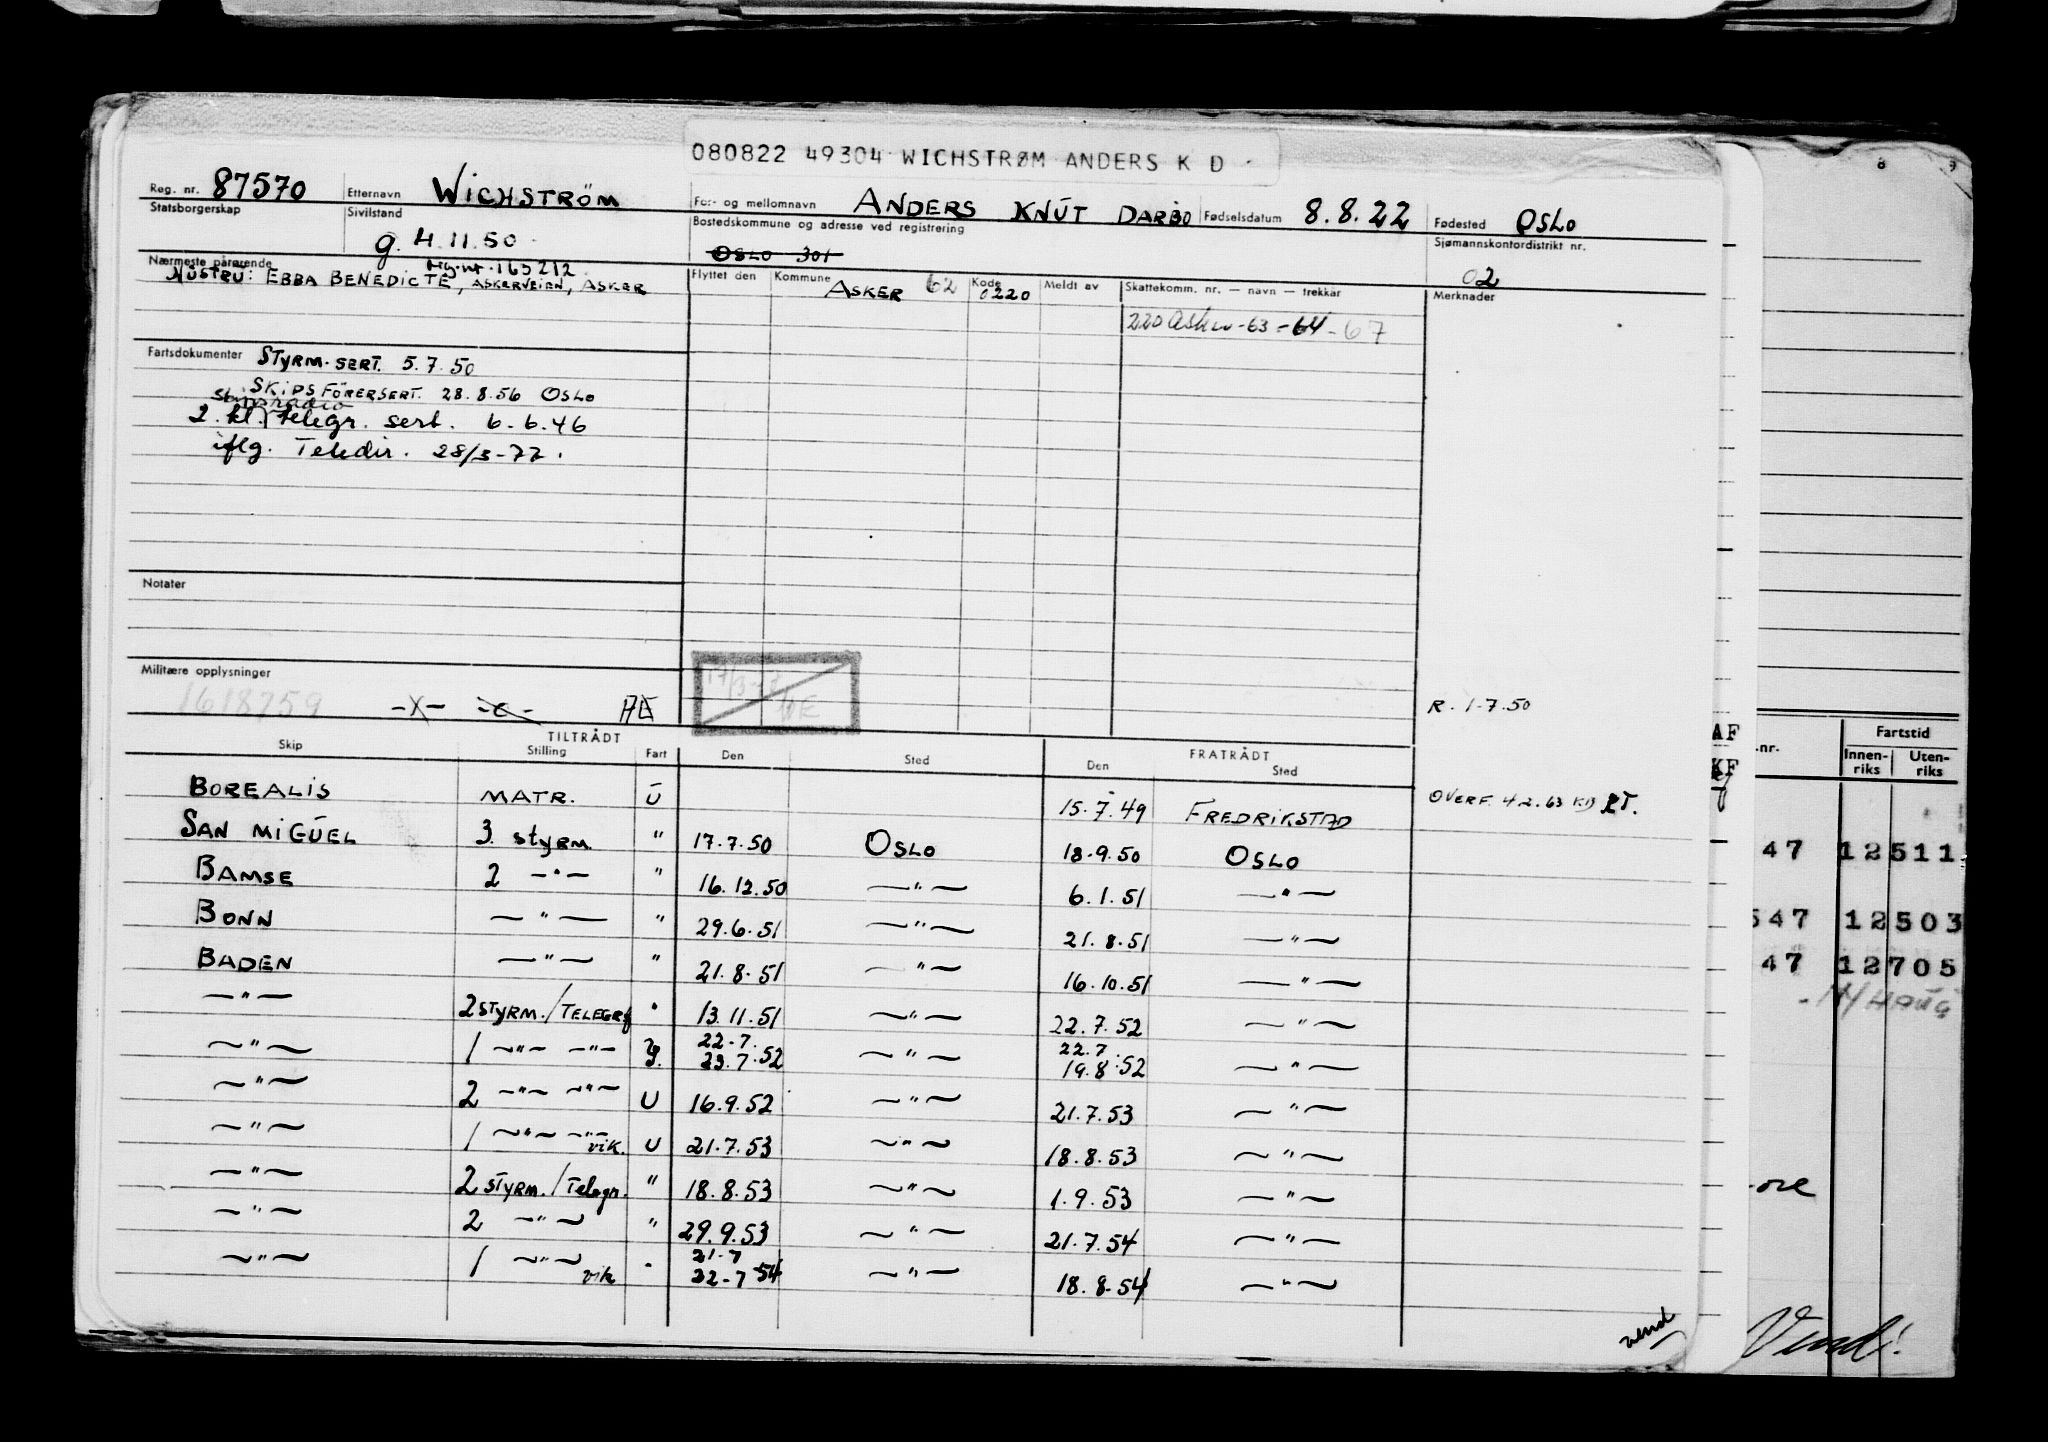 080822 49304 WICHSTRØM ANDERS K D
Reg. nr. 87570 Etternavn WICHSTRÖM For- og mellomnavn ANDERS KNUT DARBO Fødselsdatum 8.8.22 Fødested OSLO
Statsborgerskap Sivilstand g. 4.11.50 Bostedskommune og adresse ved registrering OSLO 301 Sjømannskontordistrikt nr. 02
Nærmeste pårørende 163212
HUSTRU: EBBA BENEDICTE, ASKERVEIEN, ASKER
Flyttet den Kommune Kode Meldt av Skattekomm. nr. — navn — trekkår Merknader
ASKER 62 0220
220 Asker -63 -64 -67
Fartsdokumenter STYRM. SERT. 5.7.50
SKIPSFÖRERSERT. 28.8.56 OSLO
skipsradio
2. kl. telegr. sert. 6.6.46
iflg. Teledir. 28/3-77.
Notater
Militære opplysninger
1618759 -X- -o-
R. 1.7.50
TILTRÅDT FRATRÅDT
Skip Stilling Fart Den Sted Den Sted
BOREALIS MATR. U 15.7.49 FREDRIKSTAD OVERF. 4.2.63
SAN MIGUEL 3. styrm. " 17.7.50 OSLO 18.9.50 OSLO
BAMSE 2 —"— " 16.12.50 —"— 6.1.51 —"—
BONN —"— " 29.6.51 —"— 21.8.51 —"—
BADEN —"— " 21.8.51 —"— 16.10.51 —"—
—"— 2 STYRM./TELEGRF " 13.11.51 —"— 22.7.52 —"—
—"— 1 —"— —"— 22.7. 23.7.52 —"— 22.7 19.8.52 —"—
—"— 2 —"— —"— U 16.9.52 —"— 21.7.53 —"—
—"— 1 —"— —"— vik. U 21.7.53 —"— 18.8.53 —"—
—"— 2 STYRM./Telegr. " 18.8.53 —"— 1.9.53 —"—
—"— 2 —"— " 29.9.53 —"— 21.7.54 —"—
—"— 1 —"— vik " 21.7 22.7.54 —"— 18.8.54 —"—
vend
8 9
AF
KF
.nr. Fartstid
Innen-riks Uten-riks
47 12511
547 12503
47 12705
Vend!